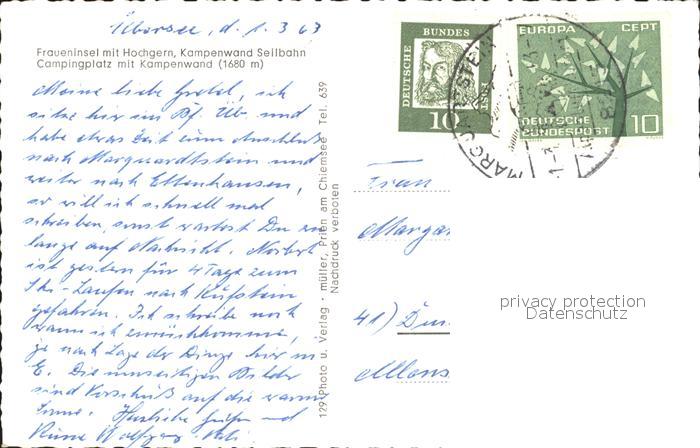 Übersee, d. 1.3.63
Fraueninsel mit Hochgern, Kampenwand Seilbahn
Campingplatz mit Kampenwand (1680 m)
Meine liebe Gretel, ich
sitze hier im Bf. Üb. und
habe etwas Zeit zum Anschluß
nach Marquardtstein und
weiter nach Ettenhausen,
so will ich schnell mal
schreiben, sonst wartest Du zu
lange auf Nachricht. Norbert
ist gestern für 4 Tage zum
Ski-Laufen nach Kufstein
gefahren. Ich schreibe noch
wann ich zurückkomme,
je nach Lage der Dinge hier in
E. Die umseitigen Bilder
sind Vorschuß auf die warme
Sonne. Herzliche Grüße und
Küsse Wolfgang
129 Photo u. Verlag · müller, Prien am Chiemsee · Tel. 639
Nachdruck verboten
DEUTSCHE BUNDESPOST
10
EUROPA CEPT
DEUTSCHE
BUNDESPOST 10
MARQUARTSTEIN
Frau
Margar
41)
privacy protection
Datenschutz